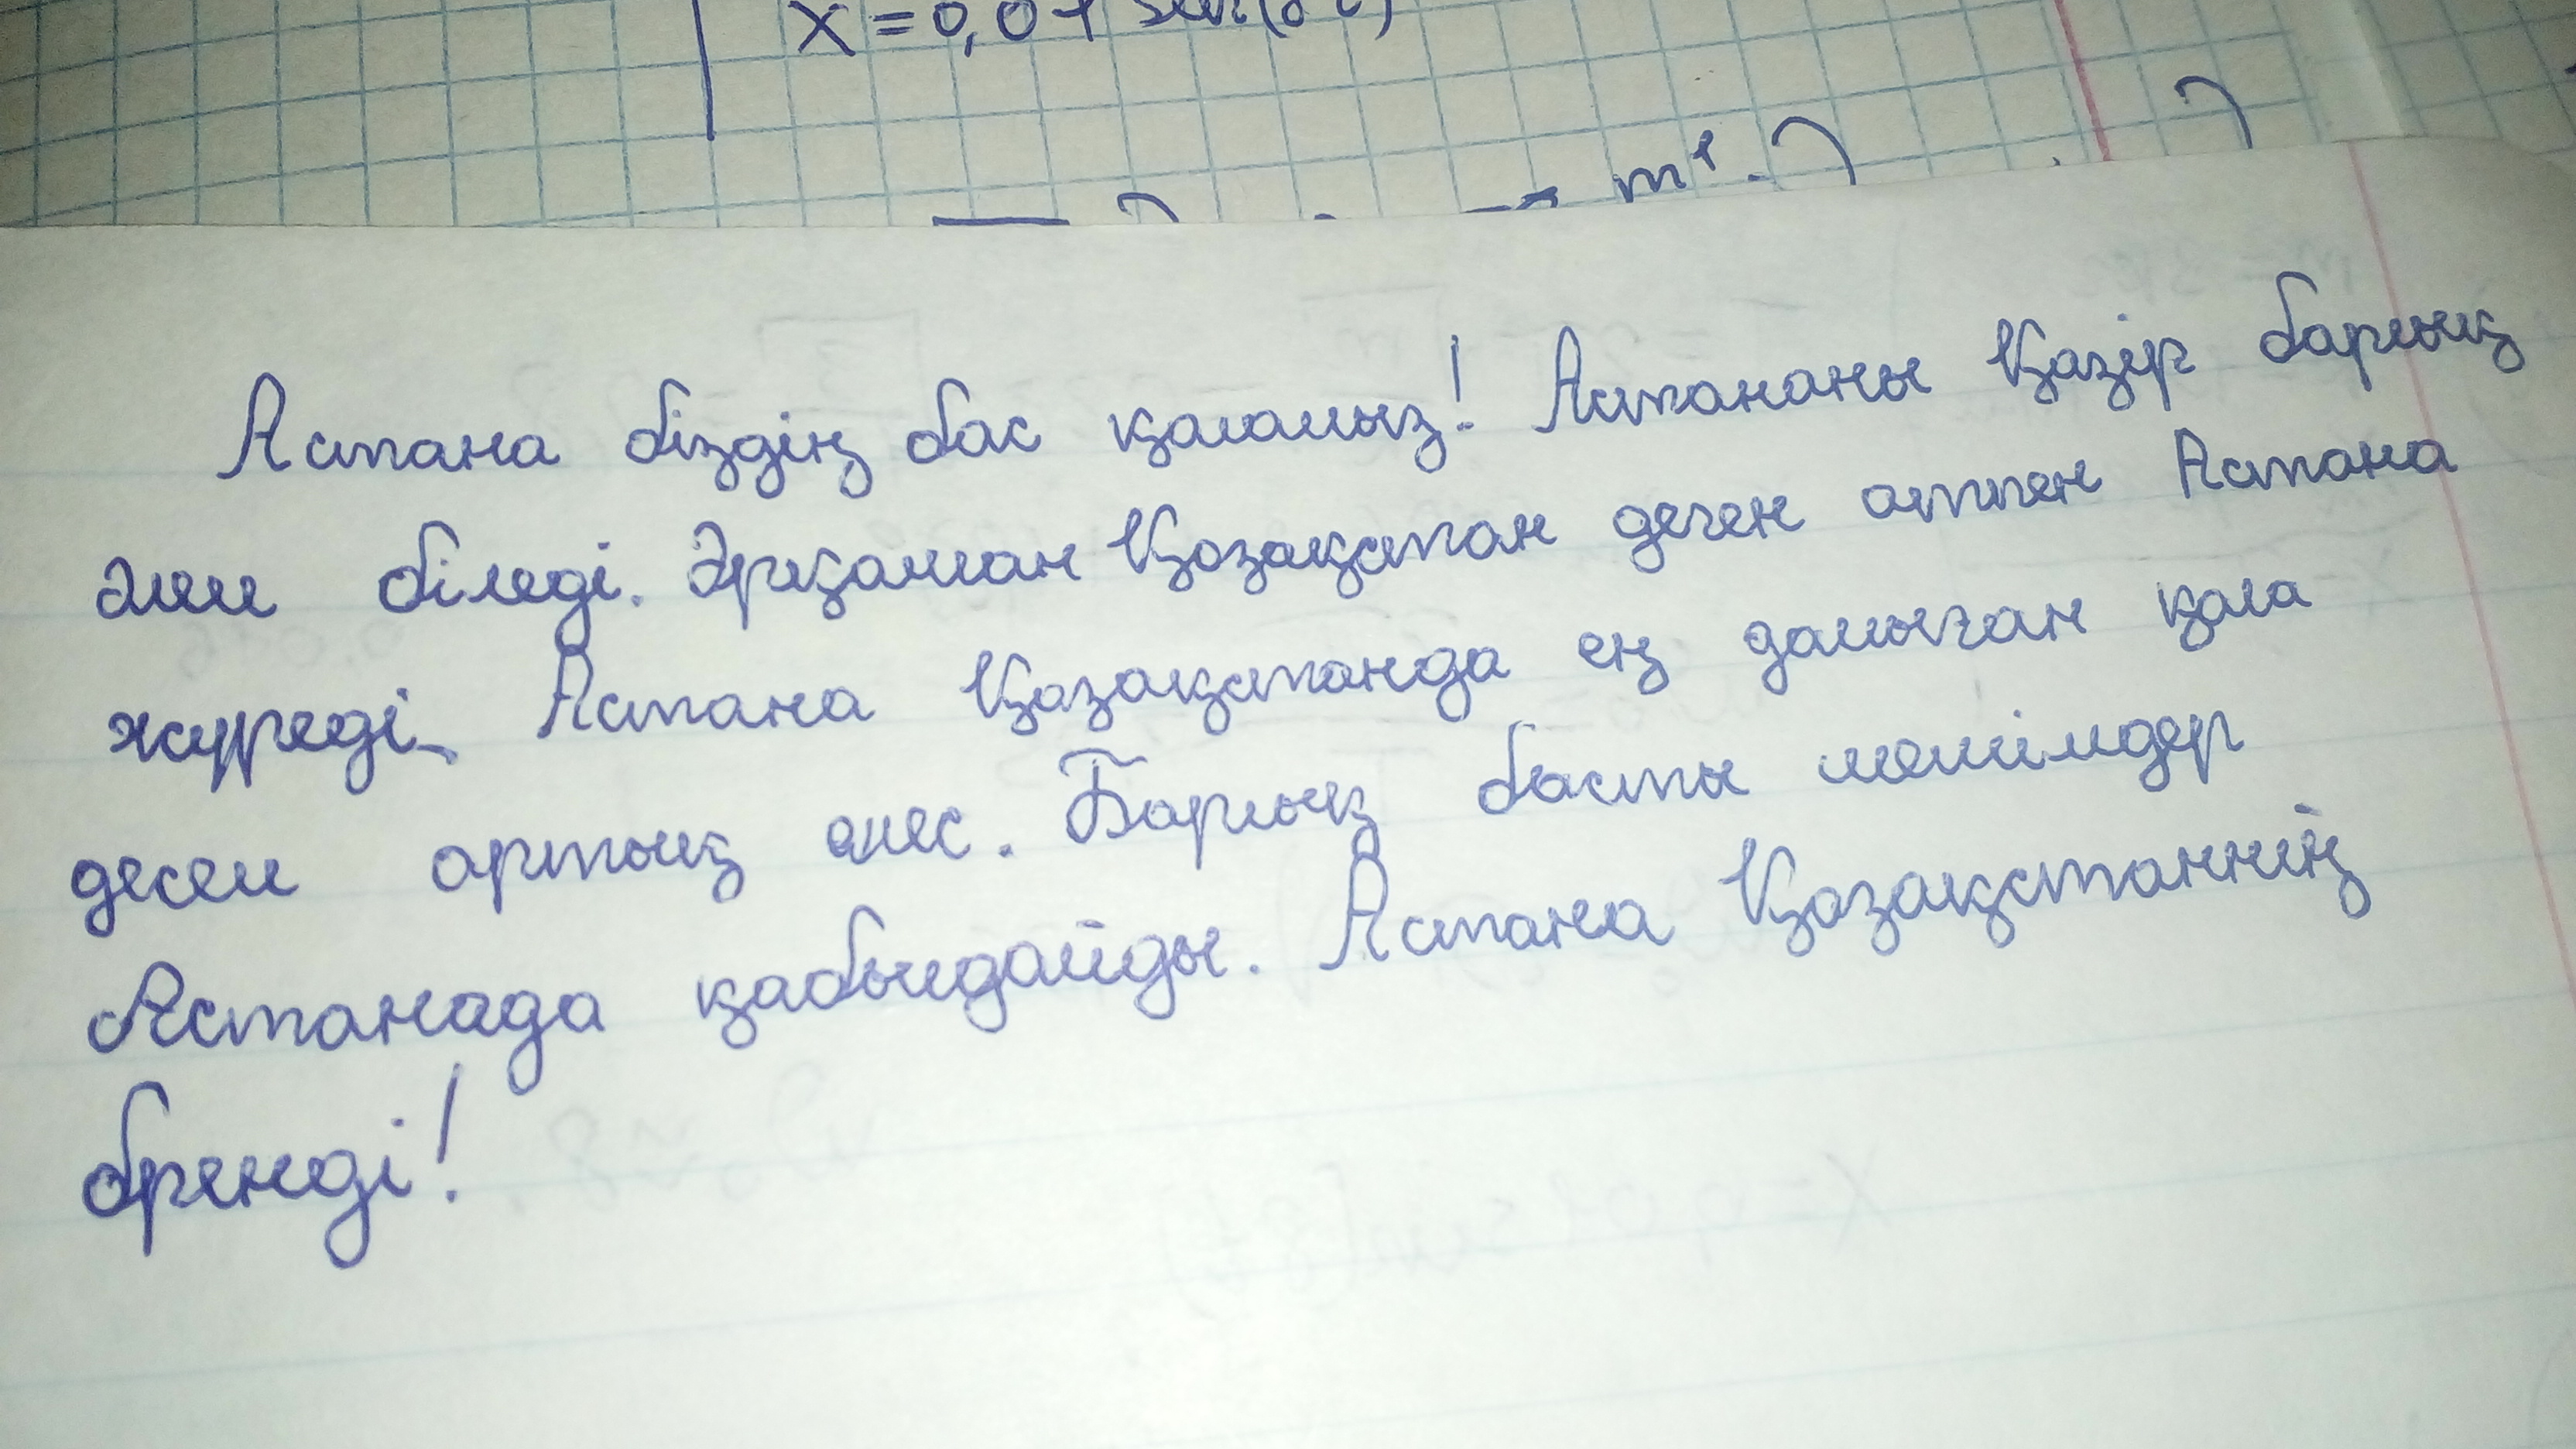 x = 0,01 sin(8t)
m¹.
Астана біздің бас қаламыз! Астананы Қазір барлық
әлем біледі. Әрқашан Қазақстан деген атпен Астана
жүреді. Астана Қазақстанда ең дамыған қала
десем артық емес. Барлық басты шешімдер
Астанада қабылдайды. Астана Қазақстанның
бренді!